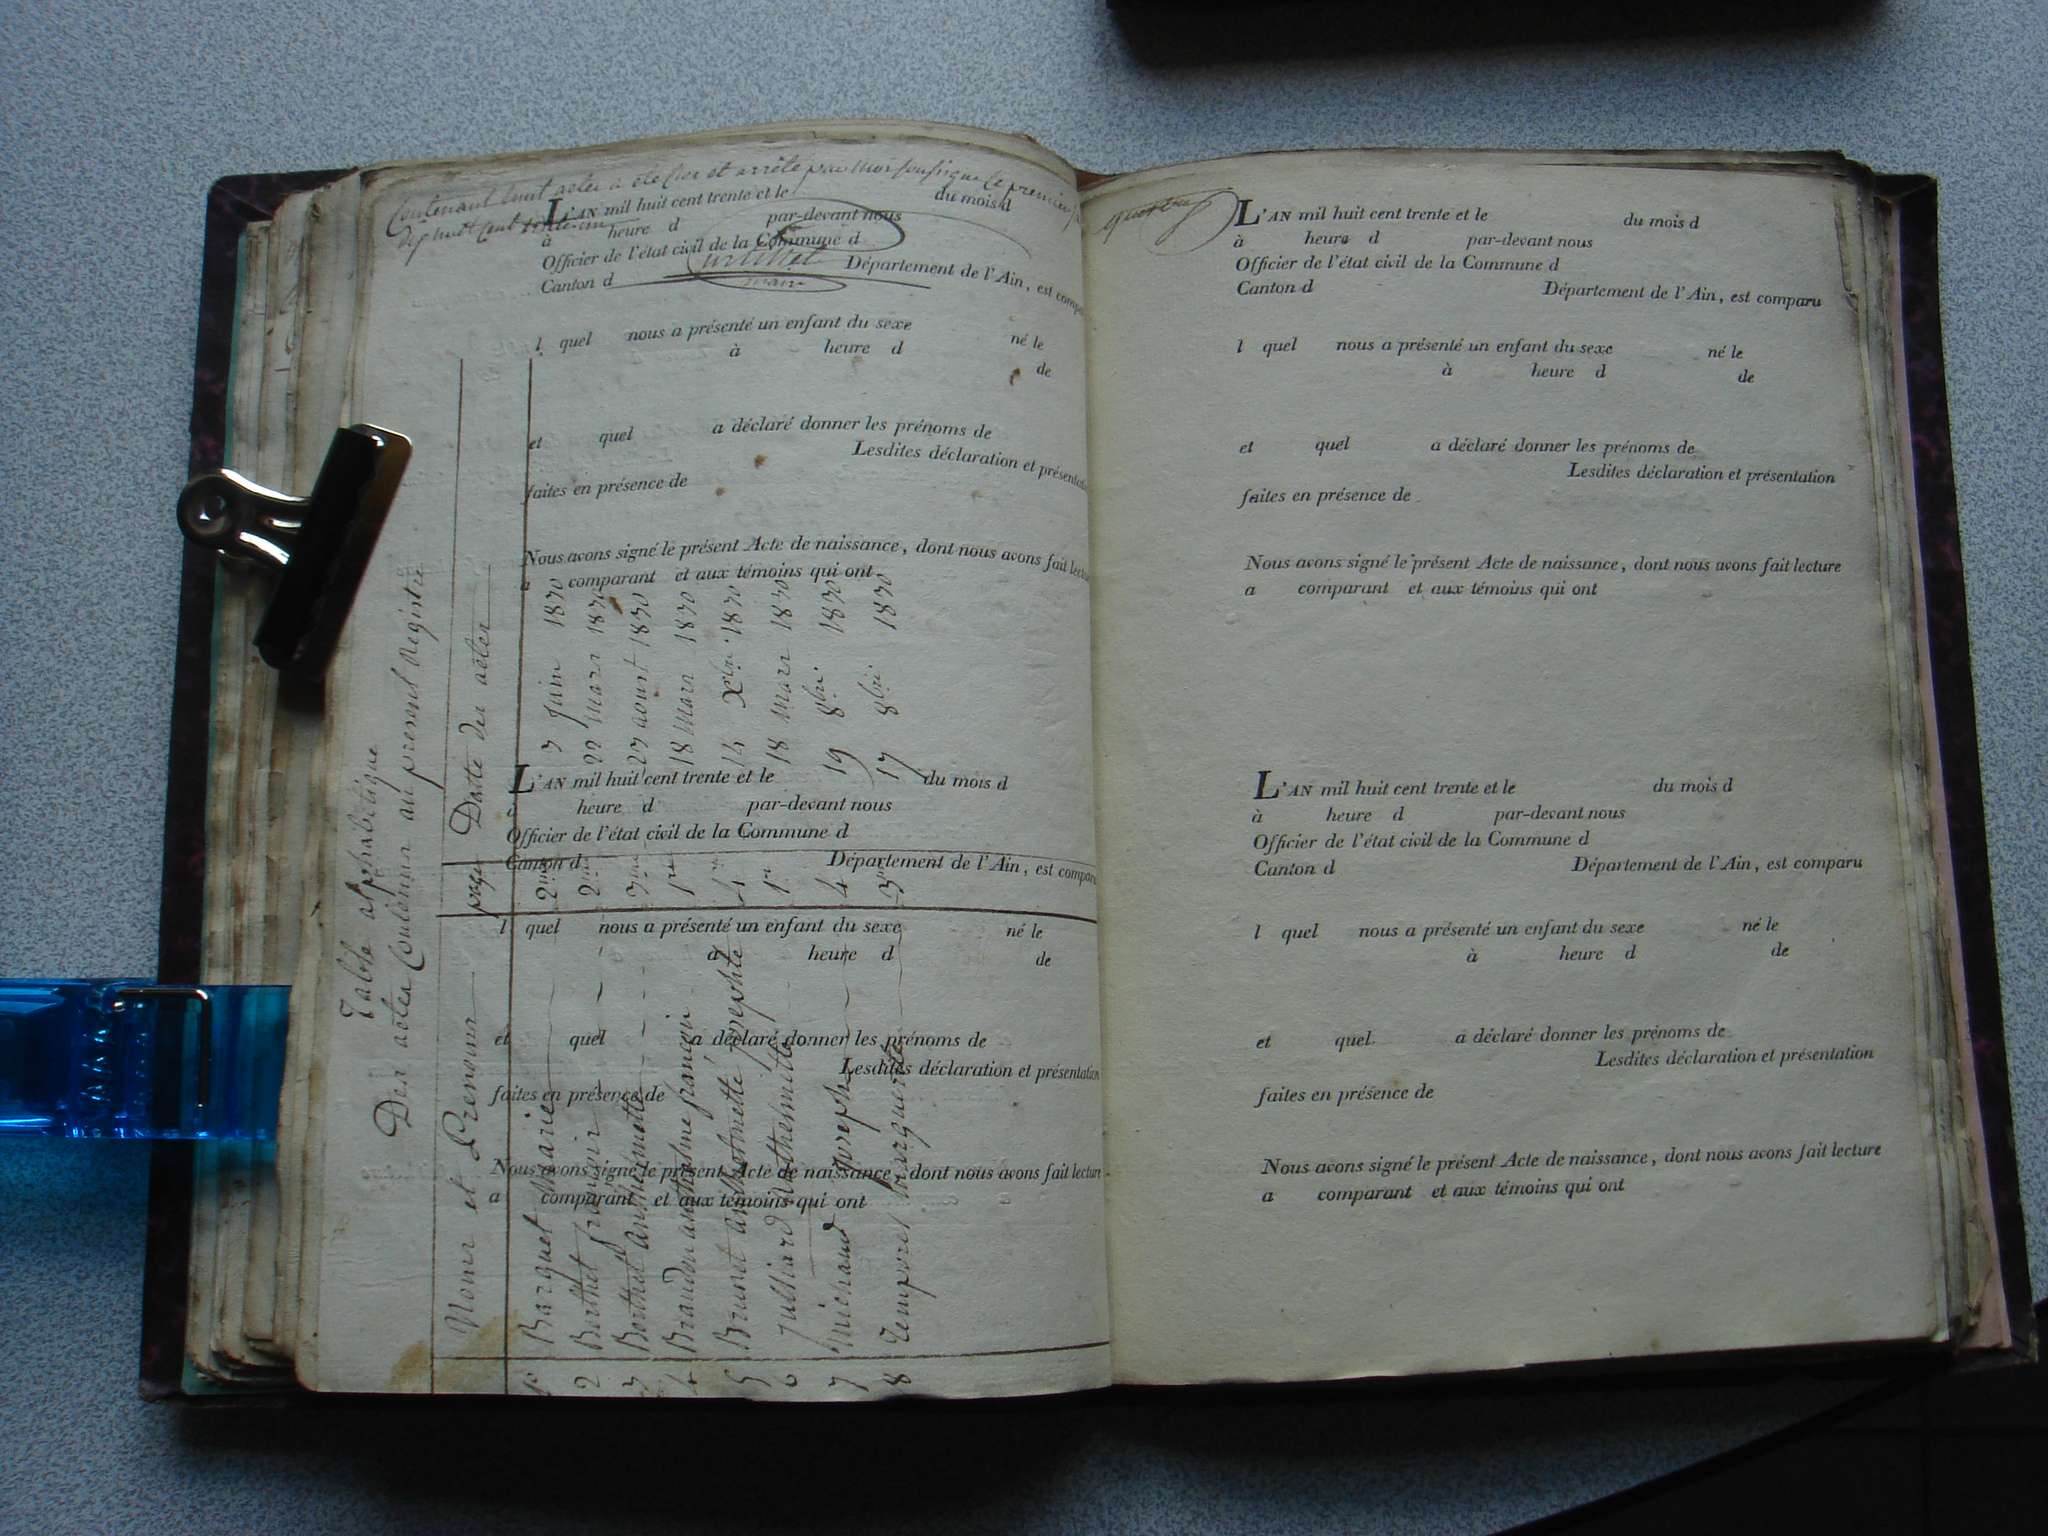 Contenant huit actes a été clos et arrêté par moi soussigné le premier
L'AN mil huit cent trente et le du mois d
à heure d par-devant nous
Officier de l'état civil de la Commune d
Canton d Département de l'Ain, est comparu
l quel nous a présenté un enfant du sexe né le
à heure d de
et quel a déclaré donner les prénoms de
Lesdites déclaration et présentation
faites en présence de
Nous avons signé le présent Acte de naissance, dont nous avons fait lecture
a comparant et aux témoins qui ont
L'AN mil huit cent trente et le du mois d
à heure d par-devant nous
Officier de l'état civil de la Commune d
Canton d Département de l'Ain, est comparu
l quel nous a présenté un enfant du sexe né le
à heure d de
et quel a déclaré donner les prénoms de
Lesdites déclaration et présentation
faites en présence de
Nous avons signé le présent Acte de naissance, dont nous avons fait lecture
a comparant et aux témoins qui ont
Table alphabétique
Des actes Contenus au present Registre
Noms et Prenoms pages Date des actes
1er Barquet Marie 2me 3 Juin 1830
2 Berthet françois 2me 22 Mars 1830
3 Berthet anthelmette 3me 27 aoust 1830
4 Braudon anthelme françois 1re 18 Mars 1830
5 Brunet anthelmette josephte 4 14 Xbre 1830
6 Julliard anthelmette 1re 18 Mars 1830
7 Michaud joseph 4 19 8bre 1830
8 Temporel Marguerite 3me 17 8bre 1830
L'AN mil huit cent trente et le du mois d
à heure d par-devant nous
Officier de l'état civil de la Commune d
Canton d Département de l'Ain, est comparu
l quel nous a présenté un enfant du sexe né le
à heure d de
et quel a déclaré donner les prénoms de
Lesdites déclaration et présentation
faites en présence de
Nous avons signé le présent Acte de naissance, dont nous avons fait lecture
a comparant et aux témoins qui ont
L'AN mil huit cent trente et le du mois d
à heure d par-devant nous
Officier de l'état civil de la Commune d
Canton d Département de l'Ain, est comparu
l quel nous a présenté un enfant du sexe né le
à heure d de
et quel a déclaré donner les prénoms de
Lesdites déclaration et présentation
faites en présence de
Nous avons signé le présent Acte de naissance, dont nous avons fait lecture
a comparant et aux témoins qui ont